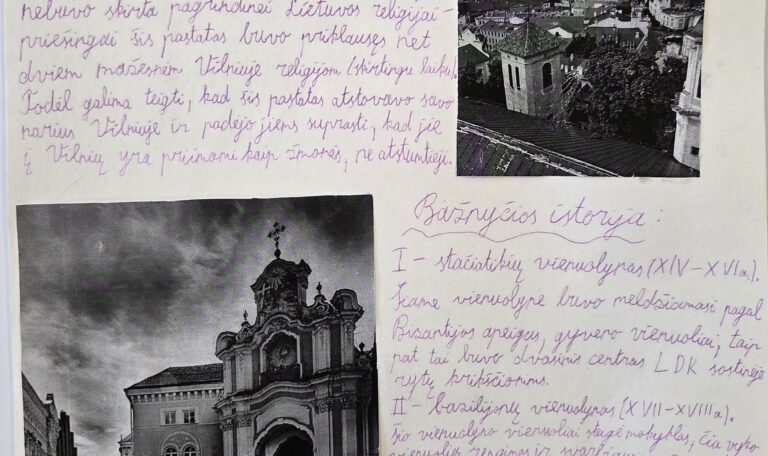 nebuvo skirta pagrindinei Lietuvos religijai -
priešingai šis pastatas buvo priklausęs net
dviem mažesnėm Vilniuje religijom (skirtingu laiku).
Todėl galima teigti, kad šis pastatas atstovavo savo
narius Vilniuje ir padėjo jiems suprasti, kad jie
į Vilnių yra priimami kaip žmonės, ne atstumtieji.
Bažnyčios istorija:
I - stačiatikių vienuolynas (XIV - XVI a.).
Šiame vienuolyne buvo meldžiamasi pagal
Bizantijos apeigas, gyveno vienuoliai, taip
pat tai buvo dvasinis centras LDK sostinėje
rytų krikščionims.
II - bazilijonų vienuolynas (XVII - XVIII a.).
Šio vienuolyno vienuoliai steigė mokyklas, čia vyko